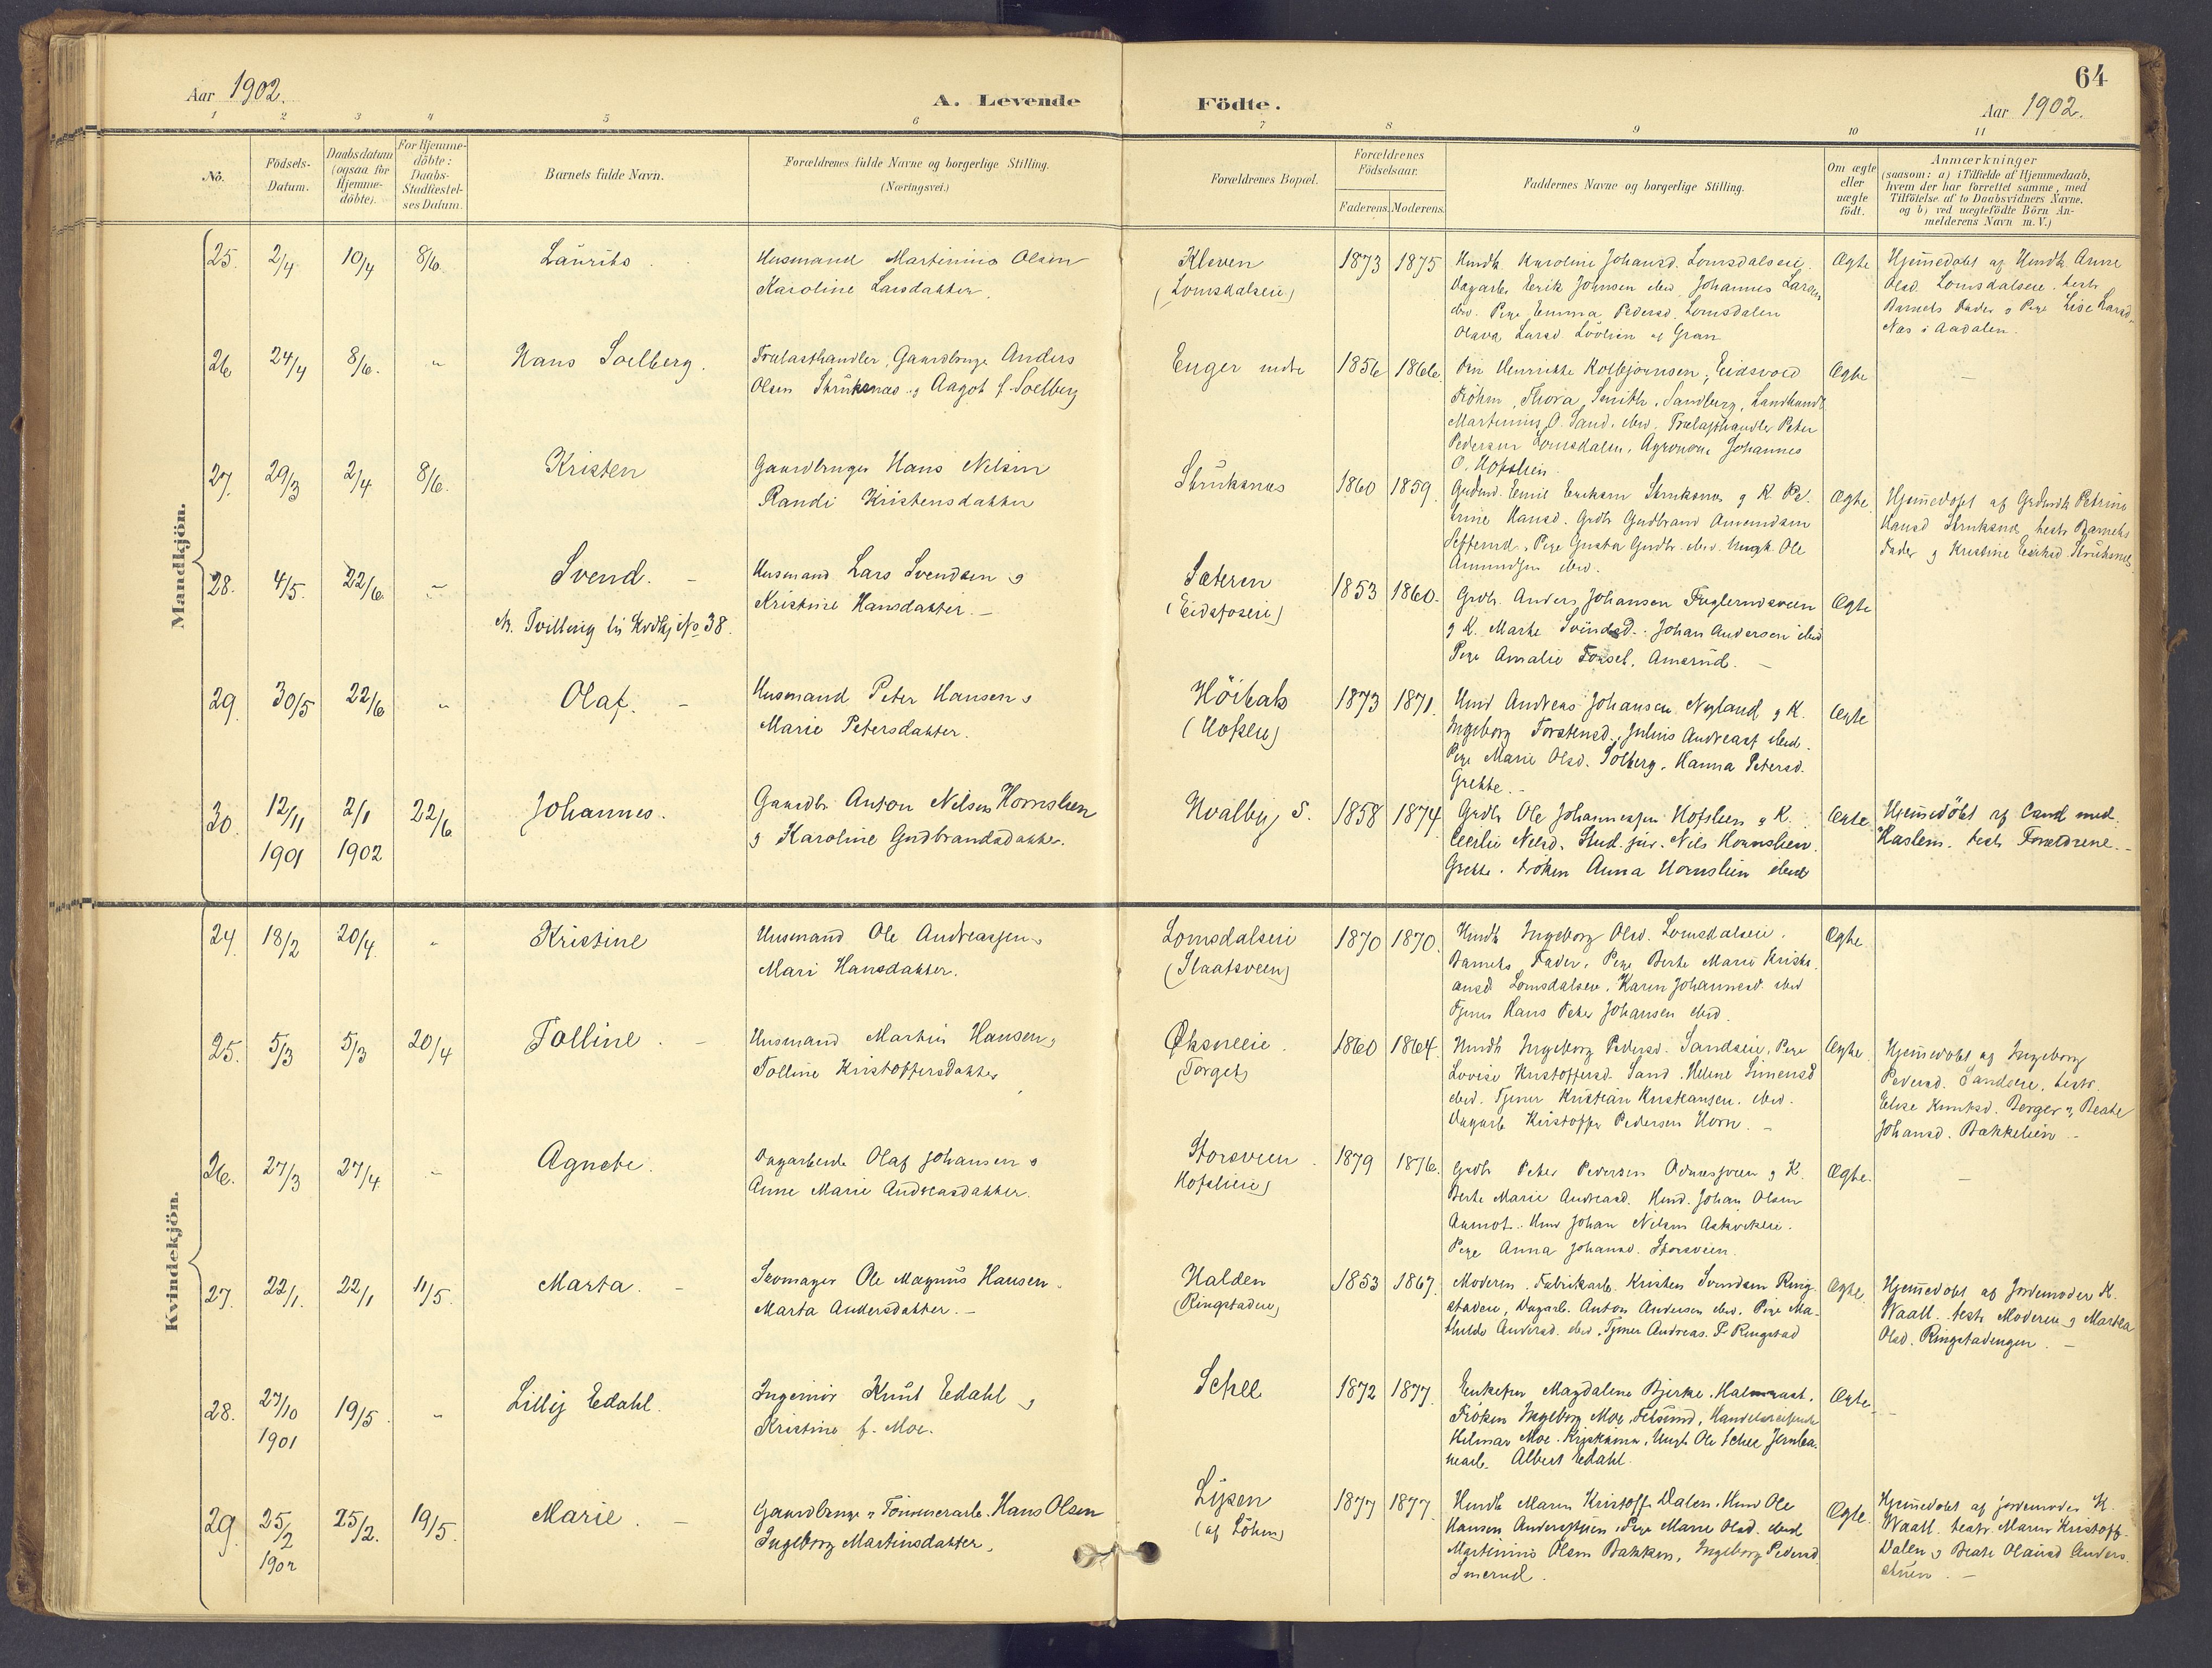 Aar 1902.
A. Levende
Födte.
64
Aar 1902.
1 2 3 4 5 6 7 8 9 10 11
No.
Födsels-
Datum.
Daabsdatum
(ogsaa for
Hjemme-
döbte).
For Hjemme-
döbte:
Daabs-
Stadfæstel-
ses Datum.
Barnets fulde Navn.
Forældrenes fulde Navne og borgerlige Stilling.
(Næringsvei.)
Forældrenes Bopæl.
Forældrenes
Födselsaar.
Faderens. Moderens.
Faddernes Navne og borgerlige Stilling.
Om ægte
eller
uægte
födt.
Anmærkninger
(saasom: a) i Tilfælde af Hjemmedaab,
hvem der har forrettet samme, med
Tilföielse af to Daabsvidners Navne,
og b) ved uægtefödte Börn An-
melderens Navn m. V.)
Mandkjön.
25. 2/4 10/4 8/6
Laurits
Husmand Martinius Olsen
Karoline Larsdatter.
Kleven
(Lomsdalseie)
1873 1875
Hmdk Karoline Johansd. Lomsdalseie.
Dagarb. Erik Johnsen ibd. Johannes Larsen
ibd. Pige Emma Pedersd. Lomsdalen
Olava Larsd. af Gran
Ægte
Hjemmedöbt af Hmdk. Anne
Olsd. Lomsdalseie. test.
Barnets Fader o Pige Lise Larsd.
Næs i Aadalen.
26 24/4 8/6. "
Hans Soelberg.
Trælasthandler, Gaardbruger Anders
Olsen Struksnæs og Aagot f. Soelberg
Enger nedre
1856 1866.
Henriette Kolbjörnsen, Eidsvold
Fröken Thora Smith, Sandberg, Landhand.
Martinius O. Sand, ibd. Trælasthandler Peter
Pedersen Lomsdalen, Agronom Johannes
O. Hofslien.
Ægte
–
27. 29/3 2/4 8/6.
Kristen
Gaardbruger Hans Nilsen
Randi Kristensdatter
Struksnæs
1860 1859.
Emil Eriksen Struksnæs og K. Pe-
trine Hansd. Grdb. Gudbrand Amundsen
Pige Gusta Gudbr. ibd. Ungk. Ole
Amundsen ibd.
Ægte.
Hjemmedöbt af Petrine
Hansd. Struksnæs, test. Barnets
Fader og Kristine Eriksd. Struksnæs.
28. 4/5. 22/6 –
Svend. –
Nb. Tvilling til Kvdkj. No 38.
Husmand Lars Svendsen og
Kristine Hansdatter. –
Sæteren
(Eidsfoseie)
1853 1860.
Grdb. Anders Johansen Fuglerudsveen
og K. Marte Svendsd. Johan Andersen ibd
Pige Amalie Amsrud. –
Ægte
29. 30/5 22/6 "
Olaf. –
Husmand Peter Hansen og
Marie Petersdatter.
Höibak
(Hofseie)
1873 1871.
Hmd Andreas Johansen Nyland og K.
Ingeborg Torstensd. Julius Andreas. ibd.
Pige Marie Olsd. Solberg. Hanna Petersd.
Grette. –
Ægte
30. 12/11 1901 2/1 1902 22/6
Johannes.
Gaardbr. Anton Nilsen Hornslien
og Karoline Gudbrandsdatter.
Hvalby, S.
1858 1874.
Grdb. Ole Johannessen Hofslien og K.
Cecilie Nilsd. Stud. jur. Nils Hornslien.
Grette. Fröken Anna Hornslien ibd
Ægte.
Hjemmedöbt af Cand med.
Haslem. test. Forældrene. –
Kvindekjön.
24. 18/2 20/4. "
Kristine
Husmand Ole Andreassen og
Mari Hansdatter.
Lomsdalseie
(Slaatsveen)
1870 1870.
Hmdk Ingeborg Olsd. Lomsdalseie.
Barnets Fader, Pige Berte Marie Kristi-
ansd. Lomsdalseie. Karen Johannesd. ibd
Tjener Hans Peter Johansen ibd.
Ægte
25. 5/3 5/3 20/4
Tolline. –
Husmand Martin Hansen og
Tolline Kristoffersdatter
Øksneeie.
(Torget)
1860 1864.
Hmdk Ingeborg Pedersd. Sandseie, Pige
Lovise Kristoffersd. Sand. Helene Simensd
ibd. Tjener Kristian Kristiansen. ibd.
Dagarb Kristoffer Pedersen Horn. –
Ægte.
Hjemmedöbt af Ingeborg
Pedersd. Sandseie, test.
Elise Knutsd. Berger og Beate
Johansd. Bakkelien –
26. 27/3 27/4. –
Agnete.
Dagarbeide Olaf Johansen og
Anne Marie Andreasdatter.
Storsveen.
Hofslieie)
1879 1876.
Grdb Peter Pedersen og K.
Berte Marie Andreasd. Hmd. Johan Olsen
Aamot. Hmd Johan Nilsen
Pige Anna Johansd. Storsveen.
Ægte.
–
27. 22/1. 22/1 11/5.
Marta. –
Skomager Ole Magnus Hansen.
Marta Andersdatter. –
Halden
(Ringstadeie)
1853 1867.
Moderen. Fabrikarb. Kristen Svendsen Ring-
stadeie, Dagarb. Anton Andersen ibd. Pige Ma-
thilde Andersd. ibd. Tjener Andreas P. Ringstad
Ægte
Hjemmedöbt af Jordemoder K.
Waall. test. Moderen og Martea
Olsd. Ringstadengen. –
28. 27/10 1901 19/5. "
Lilly Edahl.
Ingeniör Knut Edahl og
Kristine f. Moe.
Schee
1872 1877.
Enkefru Magdalene Bjerke.
Fröken Ingeborg Moe, Handelsreisende
Hilmar Moe. Kristiania, Ungk Ole Schee Jernba-
nearb. Albert Edahl.
Ægte.
–
29. 25/2 1902 25/2. 19/5.
Marie. –
Gaardbruger o Tömmerarb. Hans Olsen
Ingeborg Martinsdatter.
Lysen
(af Söhm)
1877 1877.
Hmdk Maren Kristoff. Dalen. Hmd Ole
Hansen Pige Marie Olsd. ibd
Martinius Olsen Bakken, Ingeborg Pedersd.
Smerud.
Ægte.
Hjemmedöbt af Jordemoder K.
Waall. test. Maren Kristoff.
Dalen og Beate Olausd Anders-
stuen. –